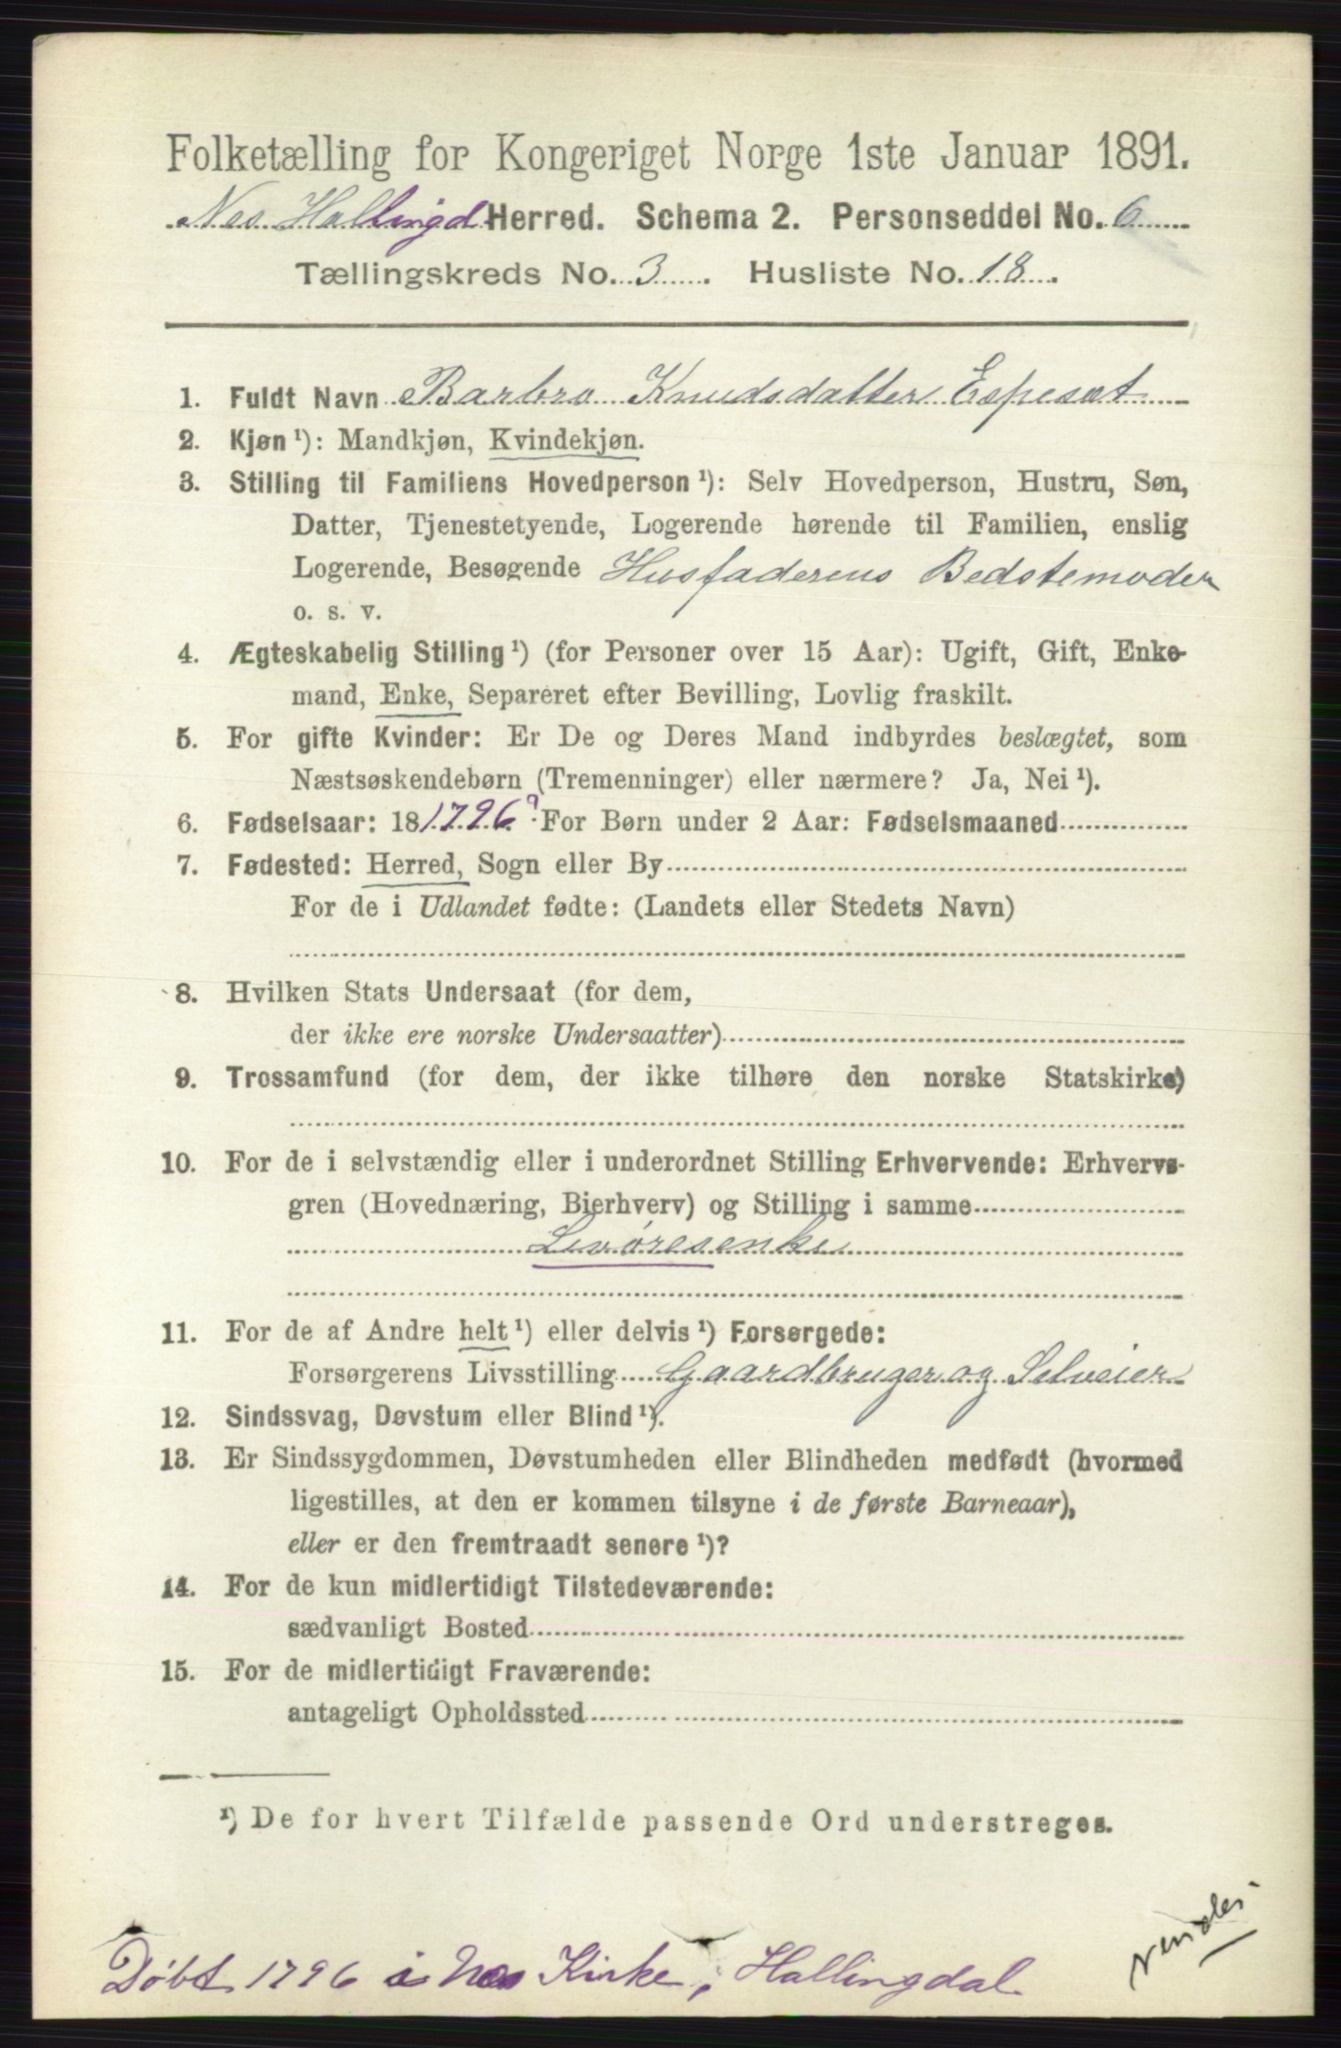 Folketælling for Kongeriget Norge 1ste Januar 1891.
Nes Hallingd Herred. Schema 2. Personseddel No. 6
Tællingskreds No. 3. Husliste No. 18.
1. Fuldt Navn Barbro Knudsdatter Espeset
2. Kjøn ¹): Mandkjøn, Kvindekjøn.
3. Stilling til Familiens Hovedperson ¹): Selv Hovedperson, Hustru, Søn,
Datter, Tjenestetyende, Logerende hørende til Familien, enslig
Logerende, Besøgende Husfaderens Bedstemoder
o. s. v.
4. Ægteskabelig Stilling ¹) (for Personer over 15 Aar): Ugift, Gift, Enke-
mand, Enke, Separeret efter Bevilling, Lovlig fraskilt.
5. For gifte Kvinder: Er De og Deres Mand indbyrdes beslægtet, som
Næstsøskendebørn (Tremenninger) eller nærmere? Ja, Nei ¹).
6. Fødselsaar: 18 1796? For Børn under 2 Aar: Fødselsmaaned
7. Fødested: Herred, Sogn eller By
For de i Udlandet fødte: (Landets eller Stedets Navn)
8. Hvilken Stats Undersaat (for dem,
der ikke ere norske Undersaatter)
9. Trossamfund (for dem, der ikke tilhøre den norske Statskirke)
10. For de i selvstændig eller i underordnet Stilling Erhvervende: Erhvervs-
gren (Hovednæring, Bierhverv) og Stilling i samme
Levøresenke
11. For de af Andre helt ¹) eller delvis ¹) Forsørgede:
Forsørgerens Livsstilling Gaardbruger og Selveier
12. Sindssvag, Døvstum eller Blind ¹).
13. Er Sindssygdommen, Døvstumheden eller Blindheden medfødt (hvormed
ligestilles, at den er kommen tilsyne i de første Barneaar),
eller er den fremtraadt senere ¹)?
14. For de kun midlertidigt Tilstedeværende:
sædvanligt Bosted
15. For de midlertidigt Fraværende:
antageligt Opholdssted
¹) De for hvert Tilfælde passende Ord understreges.
Døbt 1796 i Nes Kirke, Hallingdal